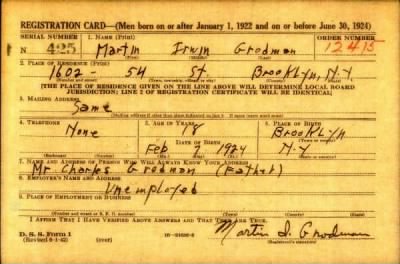 REGISTRATION CARD—(Men born on or after January 1, 1922 and on or before June 30, 1924)
SERIAL NUMBER 1. NAME (Print) ORDER NUMBER
N 425 Martin Irwin Grodman 12415
2. PLACE OF RESIDENCE (Print)
1602 - 54 St. Brooklyn, N.Y.
[THE PLACE OF RESIDENCE GIVEN ON THE LINE ABOVE WILL DETERMINE LOCAL BOARD
JURISDICTION; LINE 2 OF REGISTRATION CERTIFICATE WILL BE IDENTICAL]
3. MAILING ADDRESS
Same
[Mailing address if other than place indicated on line 2. If same insert word same]
4. TELEPHONE 5. AGE IN YEARS 6. PLACE OF BIRTH
None 18 Brooklyn
DATE OF BIRTH
Feb 1924 N.Y
7. NAME AND ADDRESS OF PERSON WHO WILL ALWAYS KNOW YOUR ADDRESS
Mr. Charles Grodman (Father)
8. EMPLOYER'S NAME AND ADDRESS
Unemployed
9. PLACE OF EMPLOYMENT OR BUSINESS
I AFFIRM THAT I HAVE VERIFIED ABOVE ANSWERS AND THAT THEY ARE TRUE.
D. S. S. Form 1
(Revised 6-1-42) Martin I. Grodman